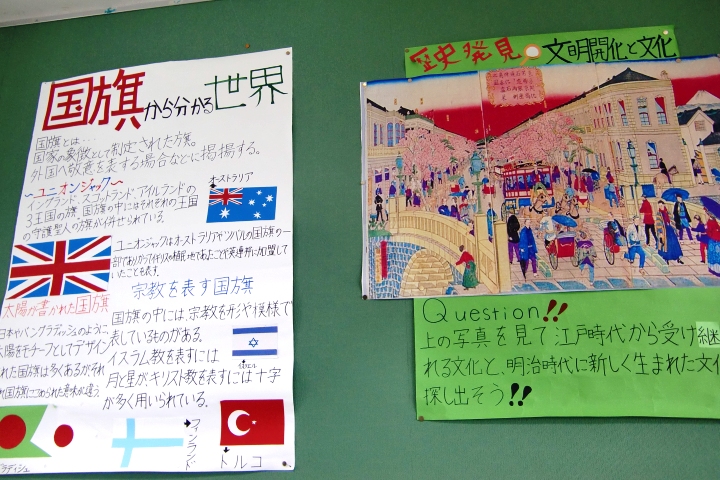 国旗から分かる世界
国旗とは…
国家の象徴として制定された方旗。
外国へ敬意を表する場合などに掲揚する。
〜ユニオンジャック〜
イングランド、スコットランド、アイルランドの
3王国の旗 国旗の中にはそれぞれの王国
の守護聖人の方旗が併せられている。
オーストラリア
ユニオンジャックはオーストラリアやツバルの国旗の一
部でありかつてイギリスの植民地であたことや英連邦に加盟して
いたことも表す。
太陽が書かれた国旗
日本やバングラディッシュのように
太陽をモチーフとしてデザイン
れた国旗は多くあるがそれ
れ国旗にこめられた意味が違う。
宗教を表す国旗
国旗の中には、宗教を形や模様で
表しているものがある。
イスラム教を表すには
月と星がキリスト教を表すには十字
が多く用いられている。
イスラエル
フィンランド
トルコ
ラディシュ
歴史発見 文明開化と文化
Question!!
上の写真を見て江戸時代から受け継
れる文化と、明治時代に新しく生まれた文化
探し出そう!!